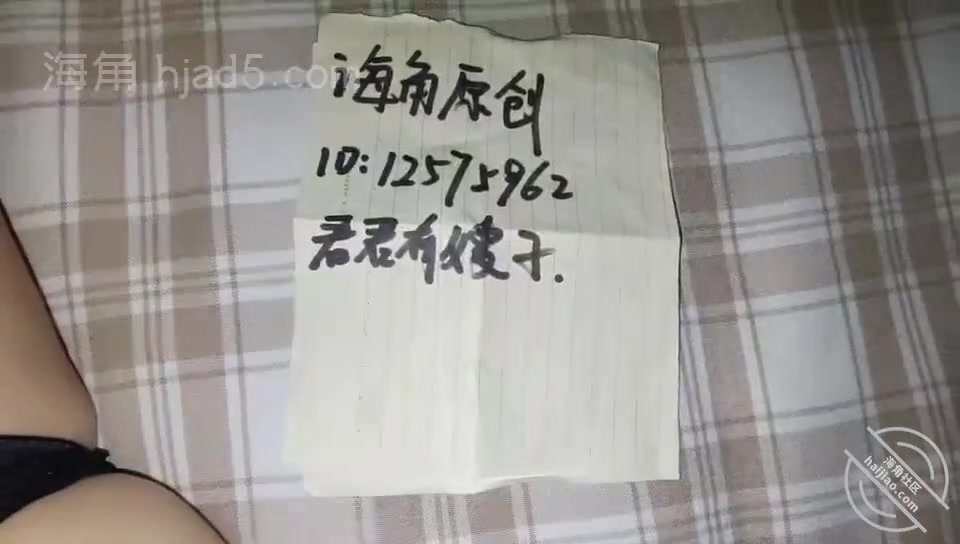 海角 hjad5.com
海角原创
ID:12575962
君君有嫂子.
海角社区
haijiao.com